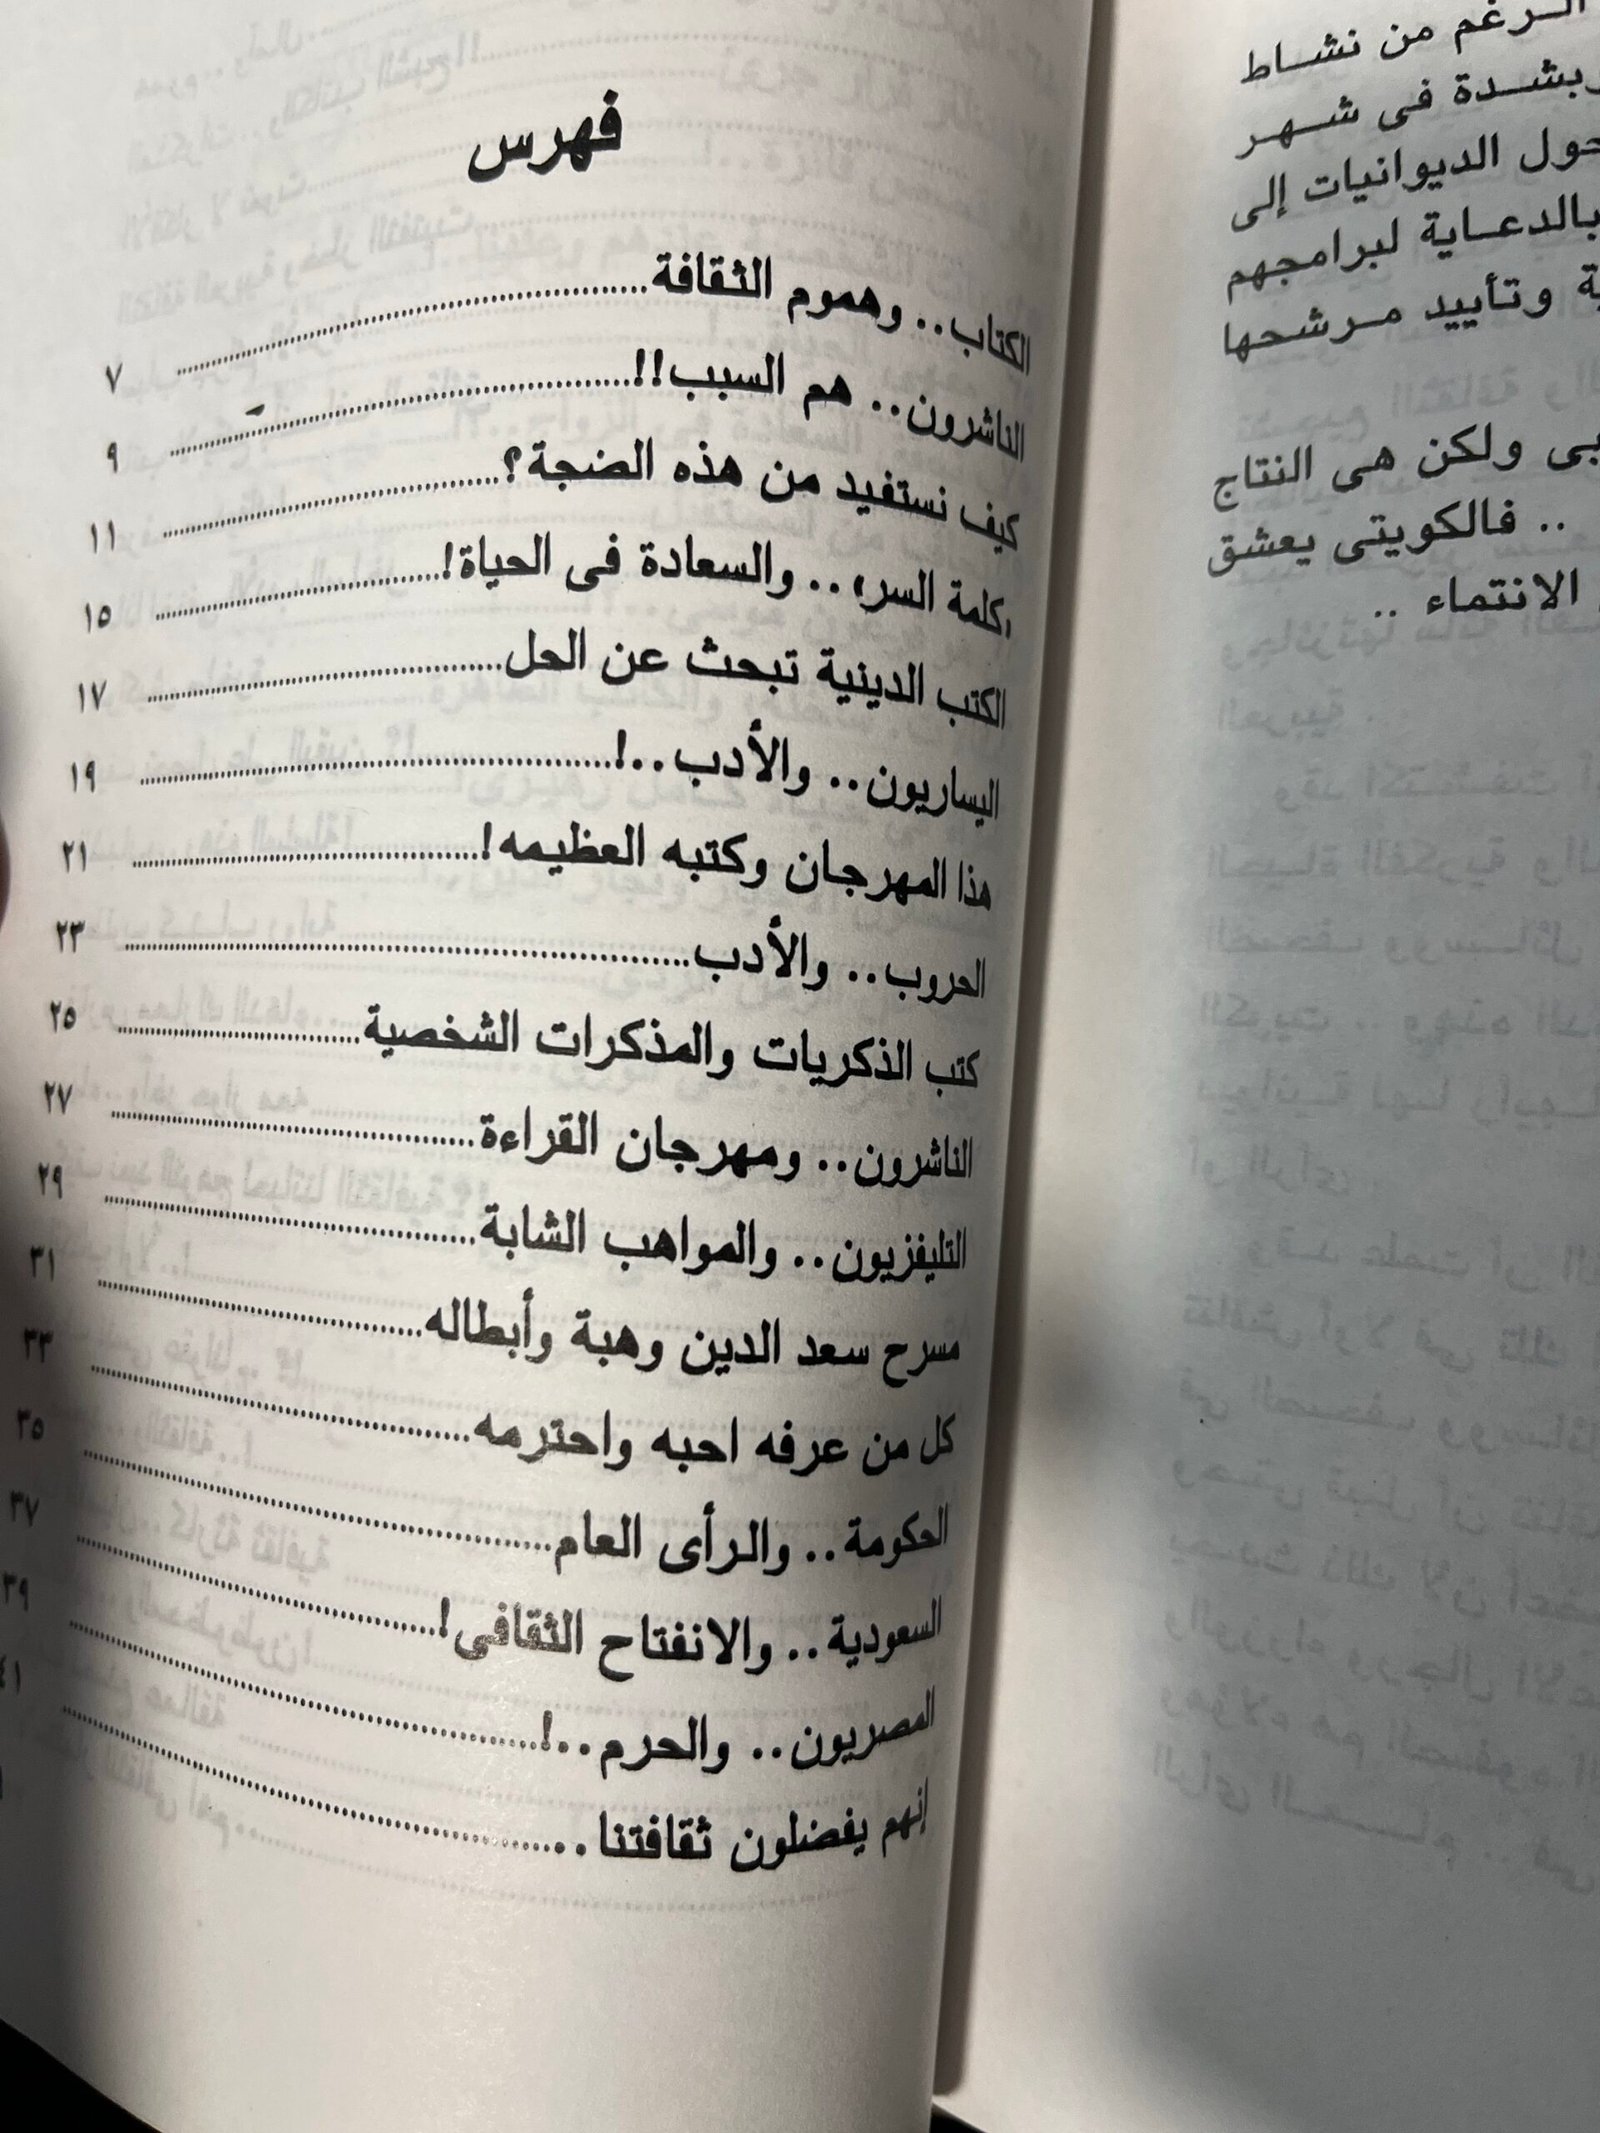 فهرس
الكتاب.. وهموم الثقافة ٧
الناشرون.. هم السبب!! ٩
كيف نستفيد من هذه الضجة؟ ١١
«كلمة السر» .. والسعادة فى الحياة! ١٥
الكتب الدينية تبحث عن الحل ١٧
اليساريون.. والأدب..! ١٩
هذا المهرجان وكتبه العظيمه! ٢١
الحروب.. والأدب ٢٣
كتب الذكريات والمذكرات الشخصية ٢٥
الناشرون.. ومهرجان القراءة ٢٧
التليفزيون.. والمواهب الشابة ٢٩
مسرح سعد الدين وهبة وأبطاله ٣١
كل من عرفه احبه واحترمه ٣٣
الحكومة.. والرأى العام ٣٥
السعودية.. والانفتاح الثقافى! ٣٧
المصريون.. والحرم..! ٣٩
إنهم يفضلون ثقافتنا .. ٤١
الرغم من نشاط
بشدة فى شهر
حول الديوانيات إلى
بالدعاية لبرامجهم
وتأييد مرشحها
ولكن هى النتاج
.. فالكويتى يعشق
الانتماء ..